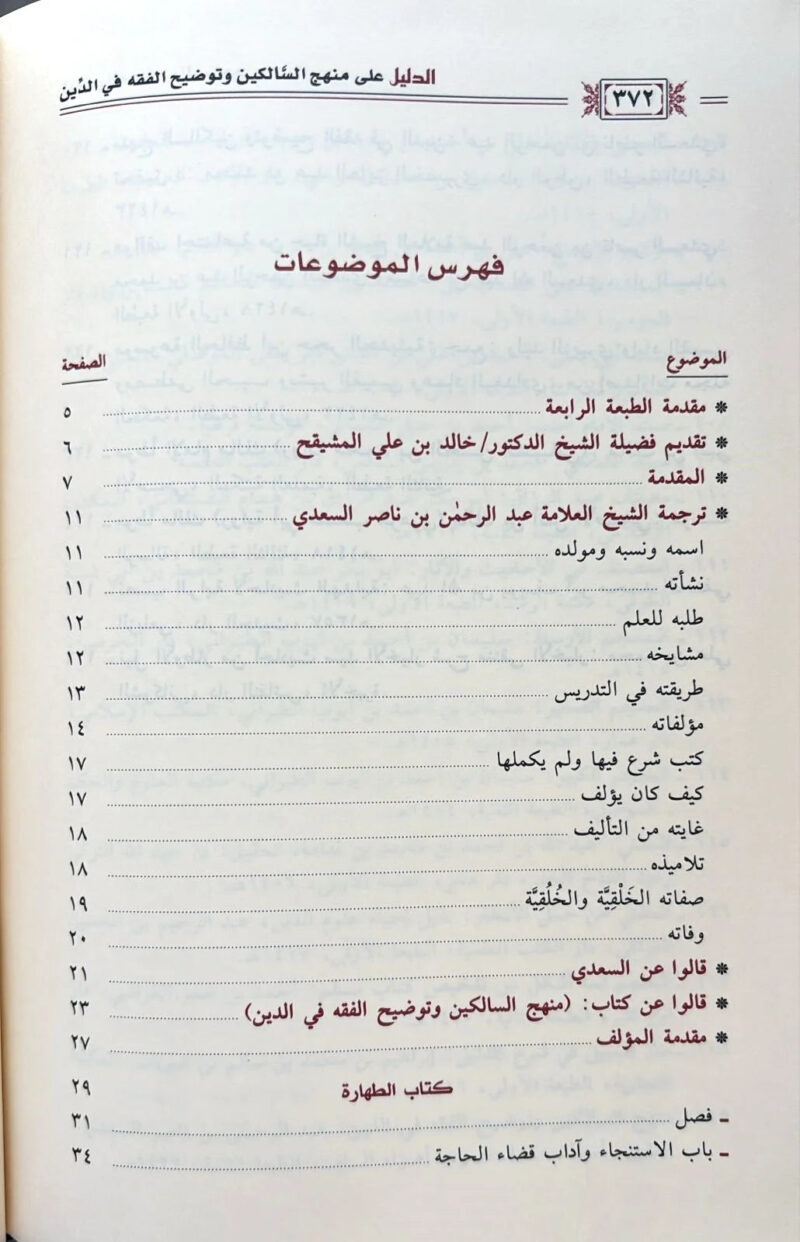 ٣٧٢ الدليل على منهج السَّالكين وتوضيح الفقه في الدِّين
فهرس الموضوعات
الموضوع الصفحة
* مقدمة الطبعة الرابعة ٥
* تقديم فضيلة الشيخ الدكتور/ خالد بن علي المشيقح ٦
* المقدمة ٧
* ترجمة الشيخ العلامة عبد الرحمٰن بن ناصر السعدي ١١
اسمه ونسبه ومولده ١١
نشأته ١١
طلبه للعلم ١٢
مشايخه ١٢
طريقته في التدريس ١٣
مؤلفاته ١٤
كتب شرع فيها ولم يكملها ١٧
كيف كان يؤلف ١٧
غايته من التأليف ١٨
تلاميذه ١٨
صفاته الخَلْقِيَّة والخُلُقِيَّة ١٩
وفاته ٢٠
* قالوا عن السعدي ٢١
* قالوا عن كتاب: (منهج السالكين وتوضيح الفقه في الدين) ٢٣
* مقدمة المؤلف ٢٧
كتاب الطهارة ٢٩
ـ فصل ٣١
ـ باب الاستنجاء وآداب قضاء الحاجة ٣٤